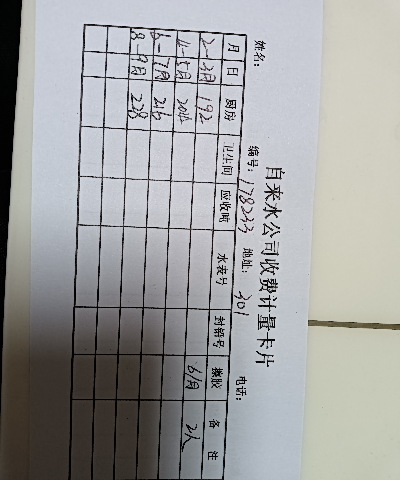 自来水公司收费计量卡片
姓名: 编号: 178233 地址: 301 电话:
月 日 厨房 卫生间 应收吨 水表号 封签号 橡胶 备注
2-3月 192
4-5月 204 6/月 2人
6-7月 216
8-9月 228